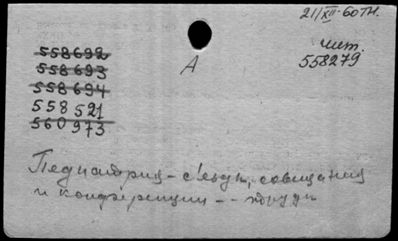 21/XII-60 тн.
чит.
558279
A
558692
558693
558694
558521
560973
Педиатрия - съезды, совещания
и конференции -- труды